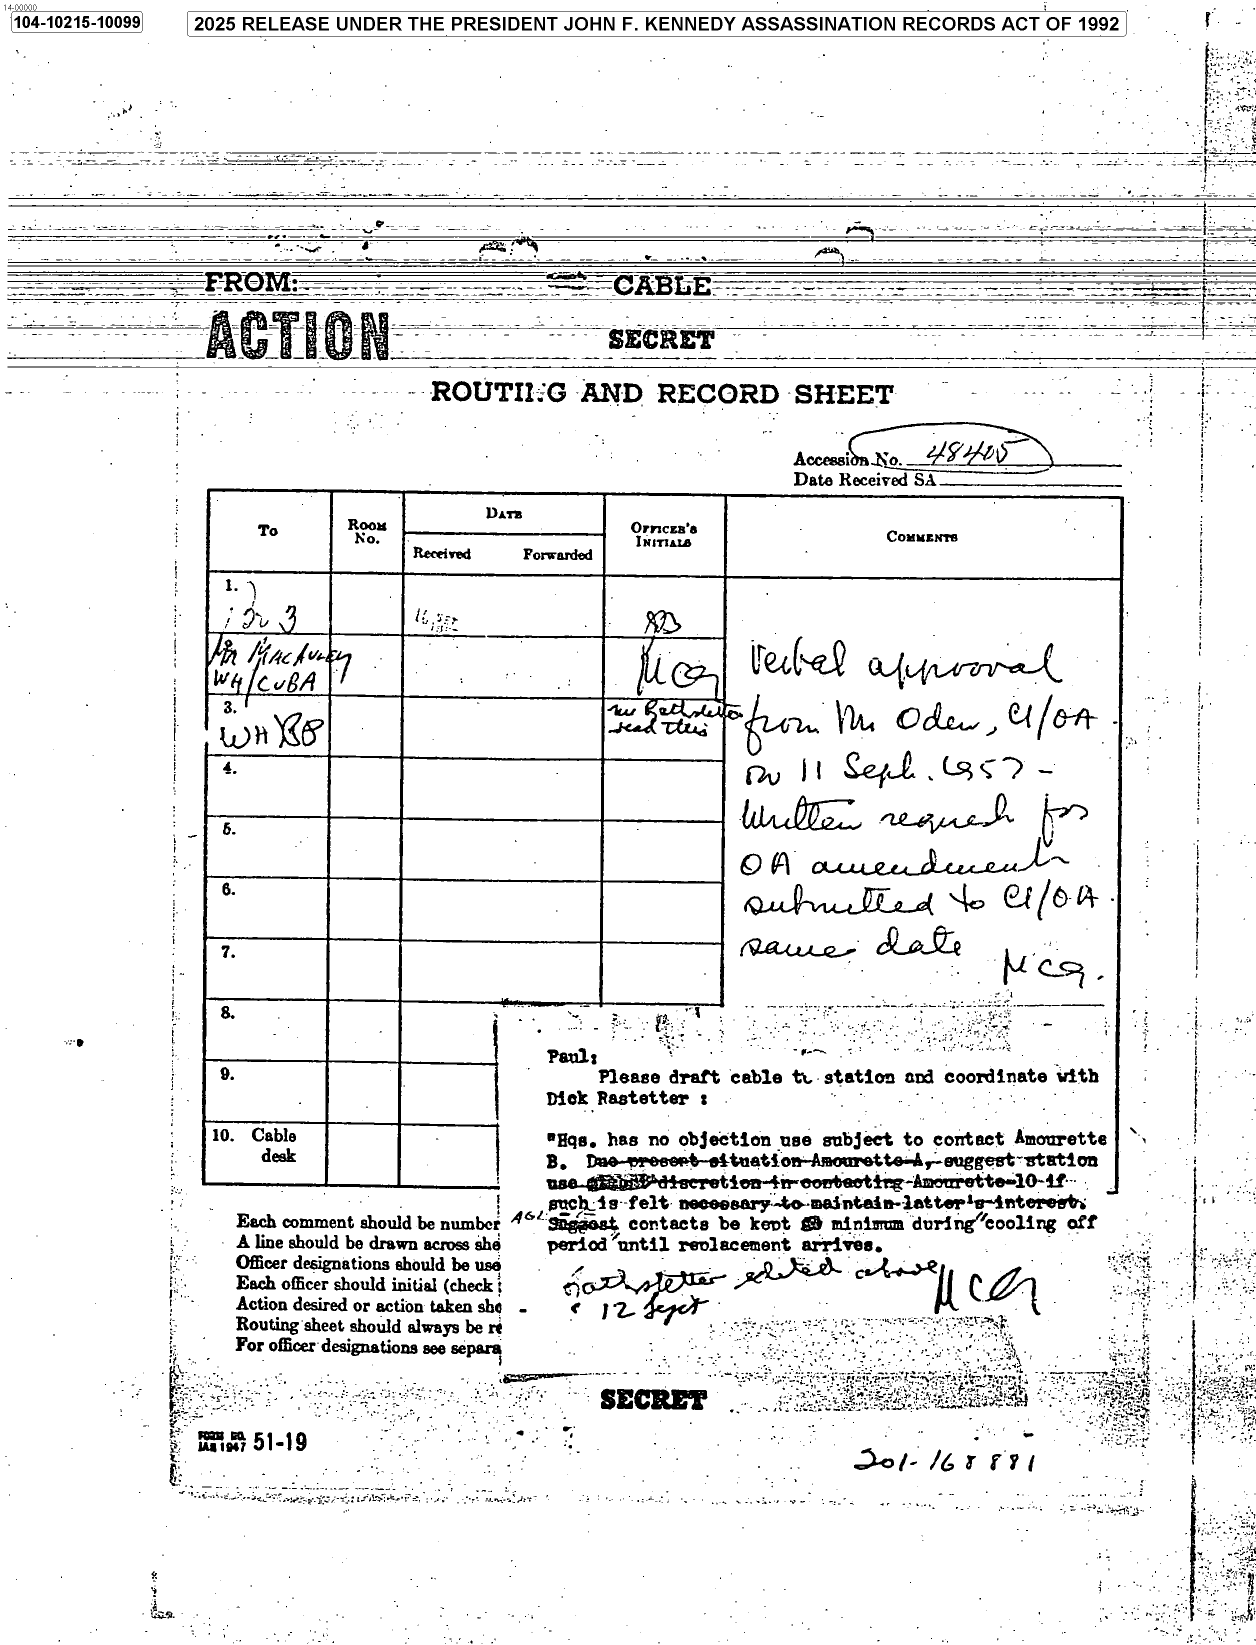 14-00000
104-10215-10099
2025 RELEASE UNDER THE PRESIDENT JOHN F. KENNEDY ASSASSINATION RECORDS ACT OF 1992
FROM: CABLE
ACTION SECRET
ROUTING AND RECORD SHEET
Accession No. 48405
Date Received SA
To
ROOM No.
DATE
Received Forwarded
OFFICER'S INITIALS
COMMENTS
1.
3
16
Mr MACAULEY
WH/CUBA
MCG
3.
WH
read this
4.
5.
6.
7.
8.
9.
10. Cable desk
Verbal approoval
from Mr Oden, CI/OA
on 11 Sept. 1957 -
Written request for
OA amendment
submitted to CI/OA
same date
MCG.
Paul:
Please draft cable to station and coordinate with
Dick Rastetter :
"Hqs. has no objection use subject to contact Amourette
B. Due present situation Amourette A, suggest station
use discretion in contacting Amourette-10 if
such is felt necessary to maintain latter's interest.
Suggest contacts be kept minimum during "cooling off
period" until replacement arrives.
edited above
12 Sept
MCG
Each comment should be number
A line should be drawn across she
Officer designations should be use
Each officer should initial (check
Action desired or action taken sho
Routing sheet should always be re
For officer designations see separa
SECRET
FORM NO.
JAN 1947 51-19
201-168881